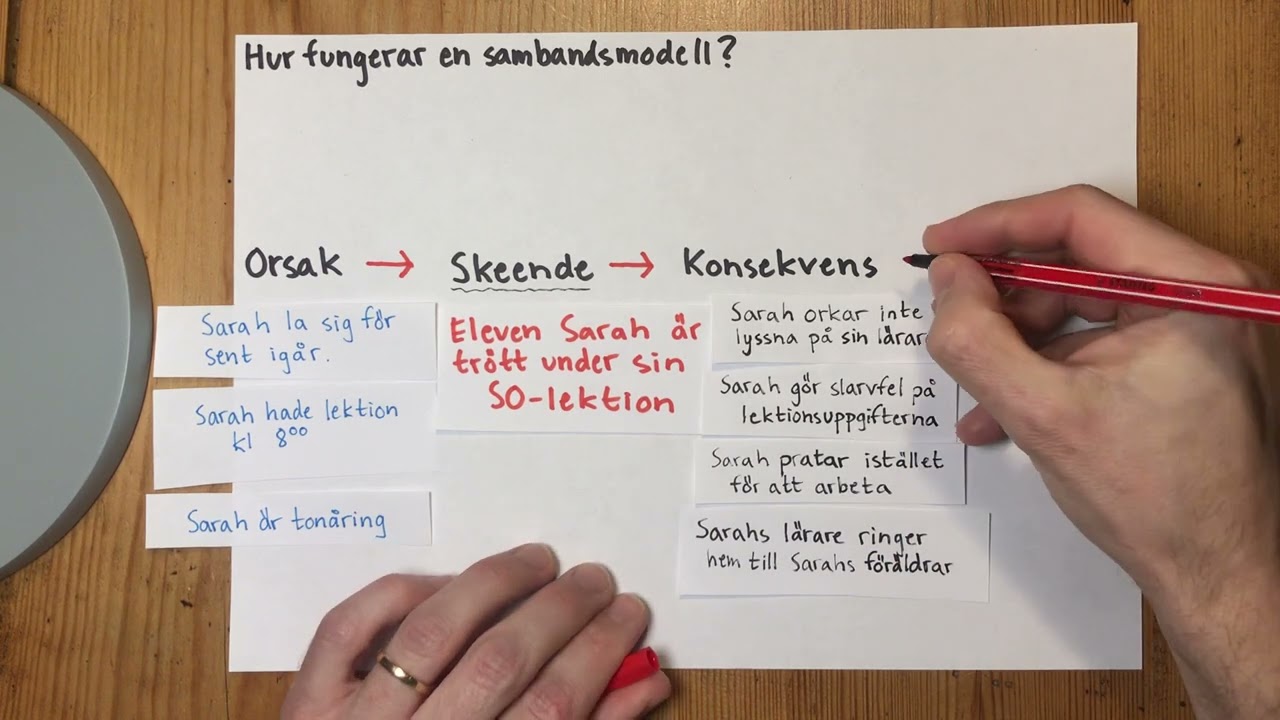 Hur fungerar en sambandsmodell?
Orsak → Skeende → Konsekvens
Sarah la sig för
sent igår.
Sarah hade lektion
kl 8⁰⁰
Sarah är tonåring
Eleven Sarah är
trött under sin
SO-lektion
Sarah orkar inte
lyssna på sin lärar
Sarah gör slarvfel på
lektionsuppgifterna
Sarah pratar istället
för att arbeta
Sarahs lärare ringer
hem till Sarahs föräldrar